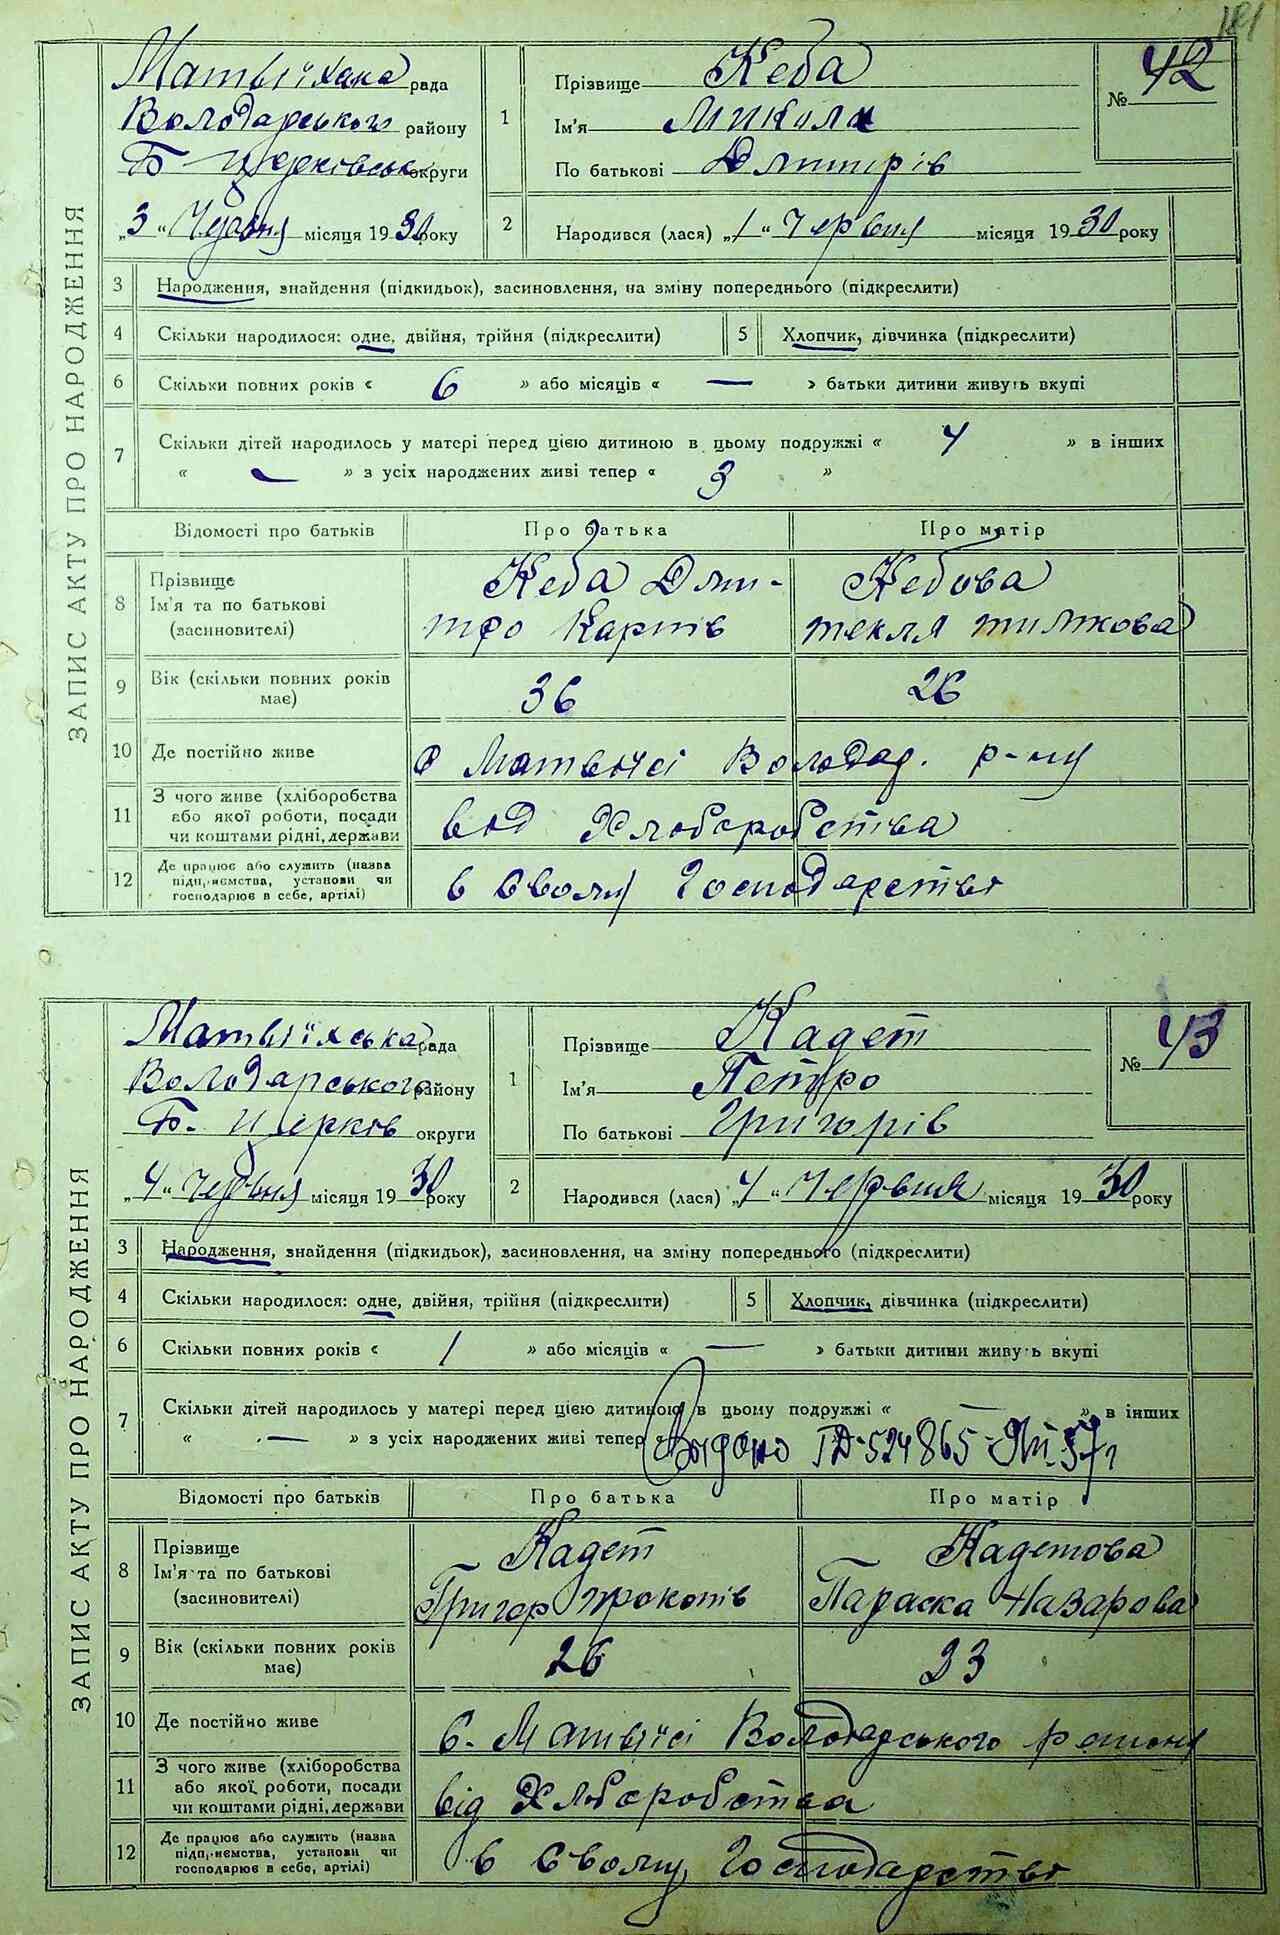 181
ЗАПИС АКТУ ПРО НАРОДЖЕННЯ
рада
Володарського району
Б Церківськ округи
„3“ Червня місяця 1930 року
1
Прізвище Кеба
Ім'я Микола
По батькові Дмитрів
№ 42
2
Народився (лася) „1“ Червня місяця 1930 року
3 Народження, знайдення (підкидьок), засиновлення, на зміну попереднього (підкреслити)
4 Скільки народилося: одне, двійня, трійня (підкреслити) 5 Хлопчик, дівчинка (підкреслити)
6 Скільки повних років « 6 » або місяців « — » батьки дитини живуть вкупі
7 Скільки дітей народилось у матері перед цією дитиною в цьому подружжі « 4 » в інших
« — » з усіх народжених живі тепер « 3 »
Відомості про батьків Про батька Про матір
8 Прізвище
Ім'я та по батькові
(засиновителі)
Кеба Дми-
тро Карпів
Кебова
текля тимкова
9 Вік (скільки повних років
має)
36 26
10 Де постійно живе
в Матвіїсі Володар. р-ну
11 З чого живе (хліборобства
або якої роботи, посади
чи коштами рідні, держави
від Хліборобства
12 Де працює або служить (назва
підприємства, установи чи
господарює в себе, артілі)
в свому Господарстві
ЗАПИС АКТУ ПРО НАРОДЖЕННЯ
Матвіїхська рада
Володарського району
Б. Церків округи
„4“ Червня місяця 1930 року
1
Прізвище Кадет
Ім'я Петро
По батькові Григорів
№ 43
2
Народився (лася) „4“ Червня місяця 1930 року
3 Народження, знайдення (підкидьок), засиновлення, на зміну попереднього (підкреслити)
4 Скільки народилося: одне, двійня, трійня (підкреслити) 5 Хлопчик, дівчинка (підкреслити)
6 Скільки повних років « 1 » або місяців « — » батьки дитини живуть вкупі
7 Скільки дітей народилось у матері перед цією дитиною в цьому подружжі « — » в інших
« — » з усіх народжених живі тепер
Видано 524865 57г
Відомості про батьків Про батька Про матір
8 Прізвище
Ім'я та по батькові
(засиновителі)
Кадет
Григор прокопів
Кадетова
Параска Назарова
9 Вік (скільки повних років
має)
26 23
10 Де постійно живе
в. Матвіїсі Володарського району
11 З чого живе (хліборобства
або якої роботи, посади
чи коштами рідні, держави
від Хліборобства
12 Де працює або служить (назва
підприємства, установи чи
господарює в себе, артілі)
в свому Господарстві